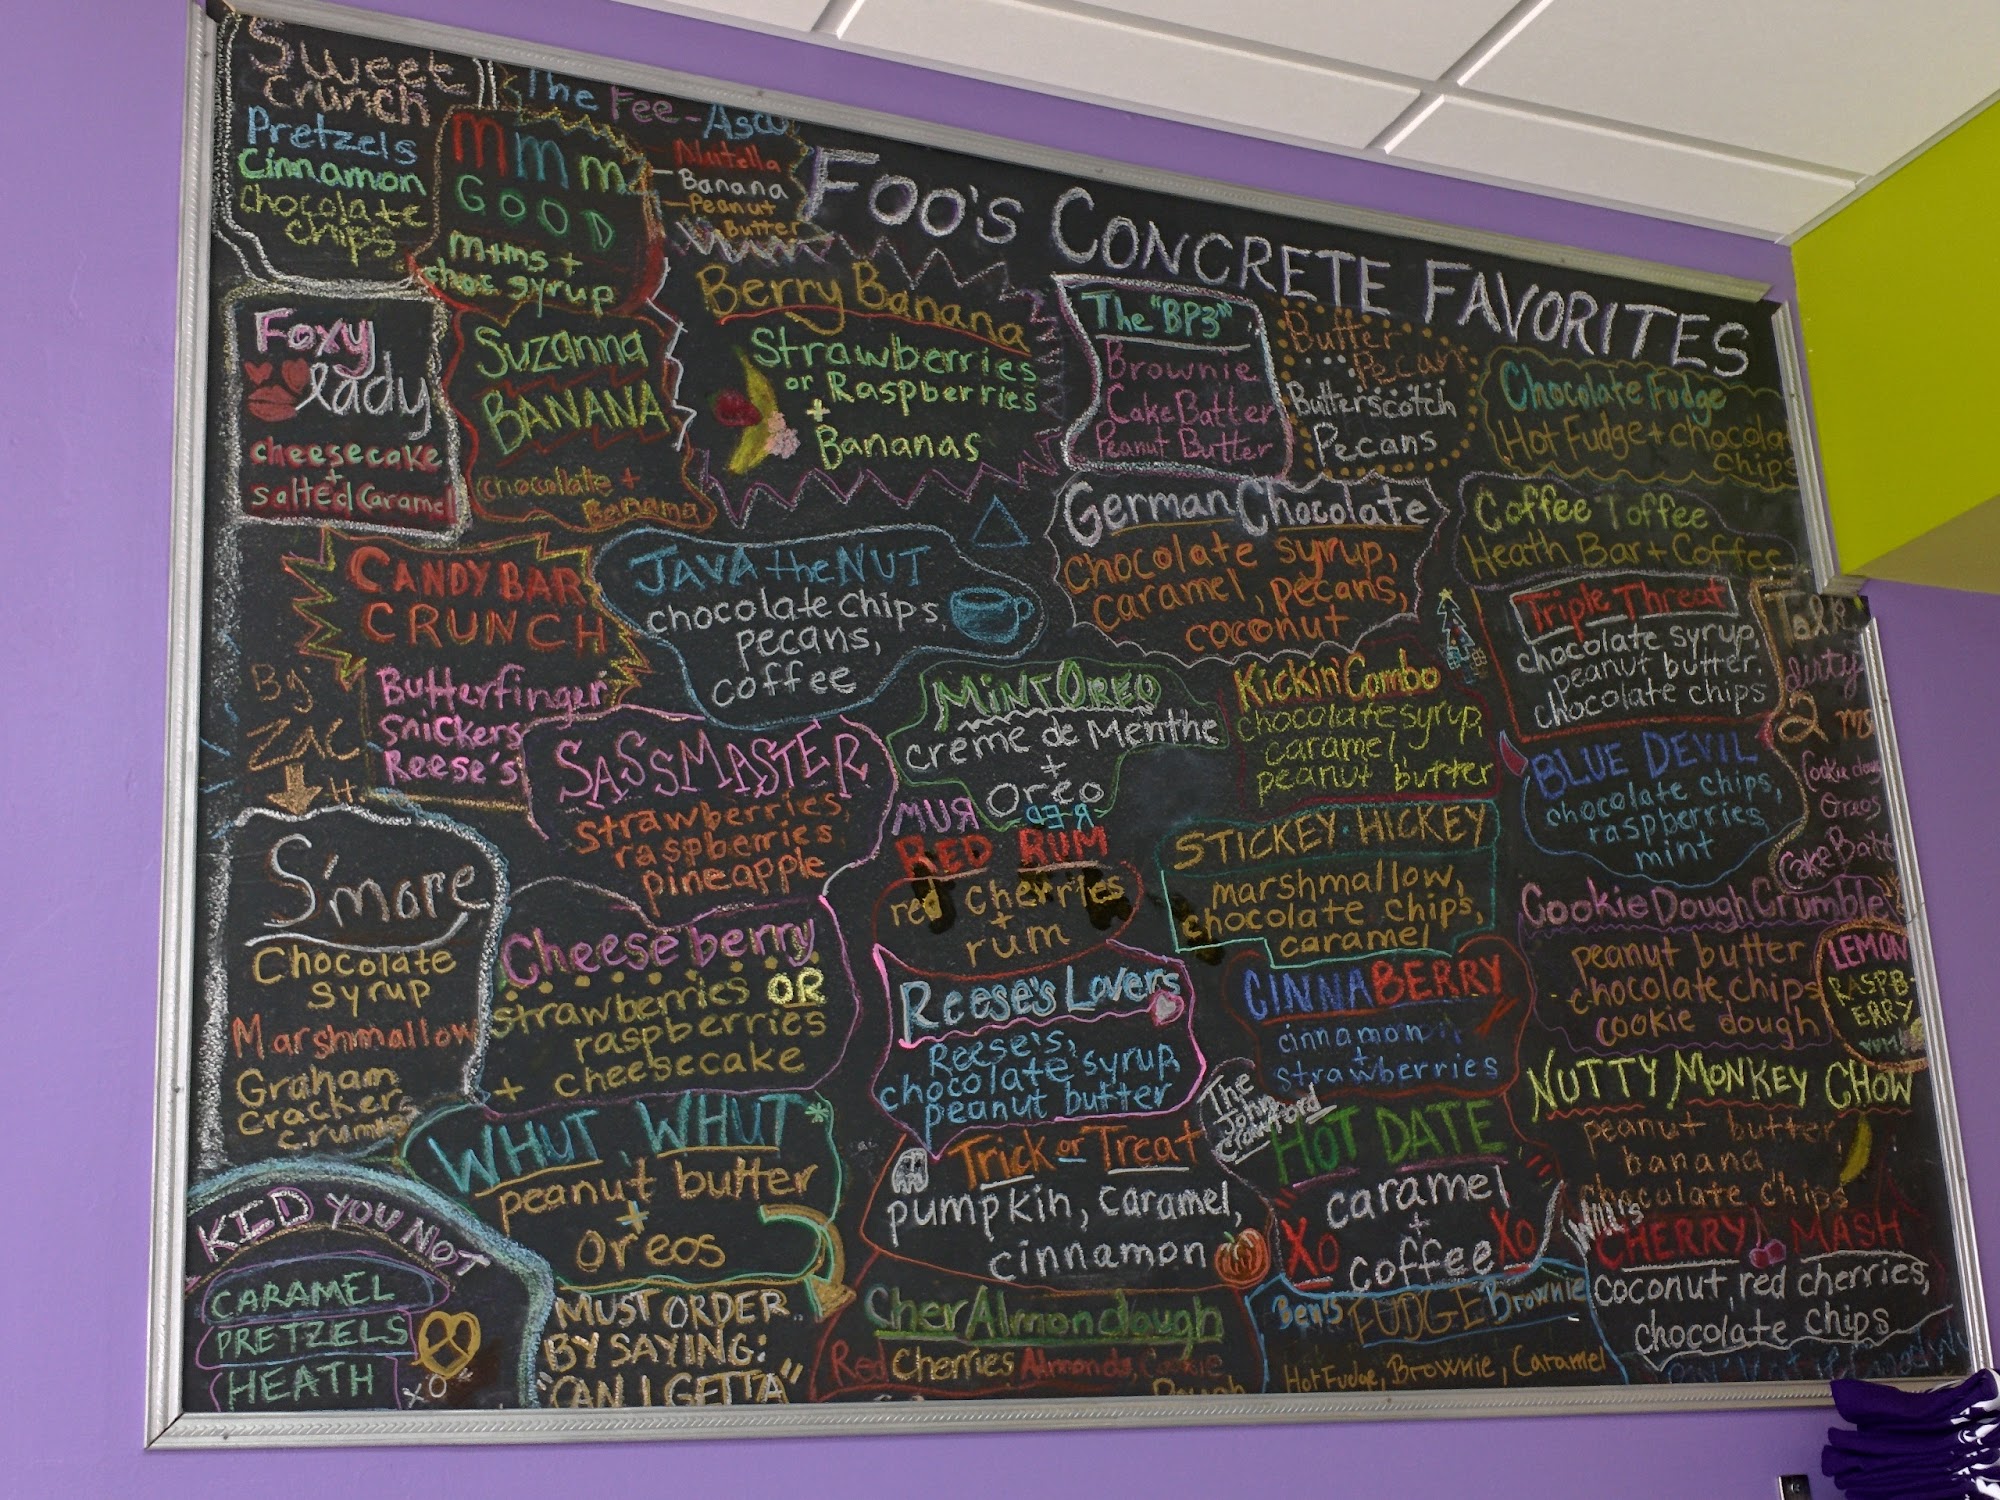 FOO'S CONCRETE FAVORITES
Sweet
Crunch
Pretzels
Cinnamon
Chocolate
Chips
mmm
GOOD
m+ms +
choc syrup
The Fee-Asco
Nutella
Banana
Peanut
Butter
Foxy
lady
cheesecake
+
salted caramel
Suzanna
BANANA
chocolate +
Banana
Berry Banana
Strawberries
or Raspberries
+
Bananas
The "BP3"
Brownie
Cake Batter
Peanut Butter
Butter
Pecan
Butterscotch
Pecans
Chocolate Fudge
Hot Fudge + chocolate
chips
CANDY BAR
CRUNCH
Butterfinger
Snickers
Reese's
By
ZAC
JAVA the NUT
chocolate chips,
pecans,
coffee
German Chocolate
chocolate syrup,
caramel, pecans,
coconut
Coffee Toffee
Heath Bar + Coffee
Triple Threat
chocolate syrup,
peanut butter,
chocolate chips
Talk
dirty
2 me
Cookie dough
Oreos
Cake Batt
S'more
Chocolate
syrup
Marshmallow
Graham
cracker
crumbs
SASSMASTER
strawberries,
raspberries
pineapple
MINT OREO
creme de Menthe
+
Oreo
Kickin' Combo
chocolate syrup,
caramel,
peanut butter
BLUE DEVIL
chocolate chips,
raspberries,
mint
MUR
RED RUM
red cherries
+
rum
STICKEY-HICKEY
marshmallow,
chocolate chips,
caramel
Cookie Dough Crumble
peanut butter
chocolate chips
cookie dough
LEMON
RASPB-
ERRY
YUM!
Cheeseberry
strawberries OR
raspberries
+ cheesecake
Reese's Lovers
Reese's,
chocolate syrup,
peanut butter
CINNABERRY
cinnamon
+
strawberries
NUTTY MONKEY CHOW
peanut butter,
banana,
chocolate chips
WHUT WHUT *
peanut butter
+
oreos
MUST ORDER
BY SAYING:
"CAN I GETTA"
Trick or Treat
pumpkin, caramel,
cinnamon
The
John
Crawford
HOT DATE
caramel
+
coffee
XO XO
Will's
CHERRY MASH
coconut, red cherries,
chocolate chips
KID YOU NOT
CARAMEL
PRETZELS
HEATH
XO
CherAlmondough
Red Cherries Almonds, Cookie
Dough
Ben's FUDGE Brownie
Hot Fudge, Brownie, Caramel